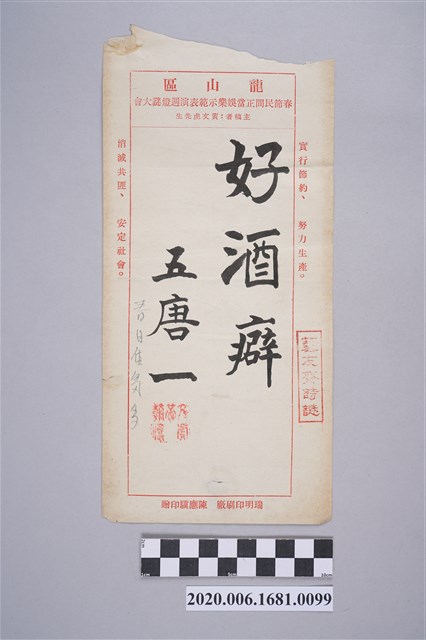 龍山區
春節民間正當娛樂示範表演週燈謎大會
主稿者：黃文虎先生
實行節約、 努力生產。
好酒癖
五唐一
消滅共匪、 安定社會。
瑞明印刷廠 陳應麟印贈
1cm
5cm
10cm
2020.006.1681.0099